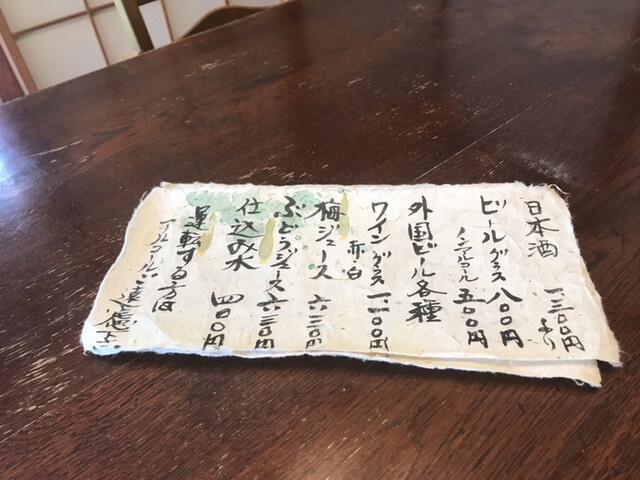 日本酒 一三〇〇円より
ビールグラス 八〇〇円
ノンアルコール 五〇〇円
外国ビール各種
ワイングラス 一一〇〇円
赤・白
梅ジュース 六三〇円
ぶどうジュース 六三〇円
仕込み水 四〇〇円
運転する方は
アルコールご遠慮下さい